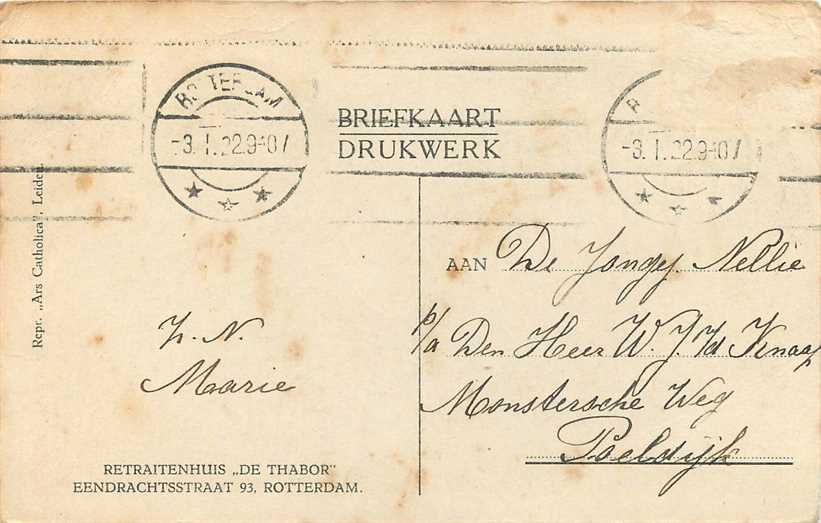 ROTTERDAM
-3.I.22.9-10V
R
-3.I.22.9-10V
BRIEFKAART
DRUKWERK
Repr. „Ars Catholica”, Leiden.
AAN De Jongej. Nellie
p/a Den Heer W. J. v/d Knaap
Monstersche Weg
Poeldijk
Z. N.
Marie
RETRAITENHUIS „DE THABOR”
EENDRACHTSSTRAAT 93, ROTTERDAM.